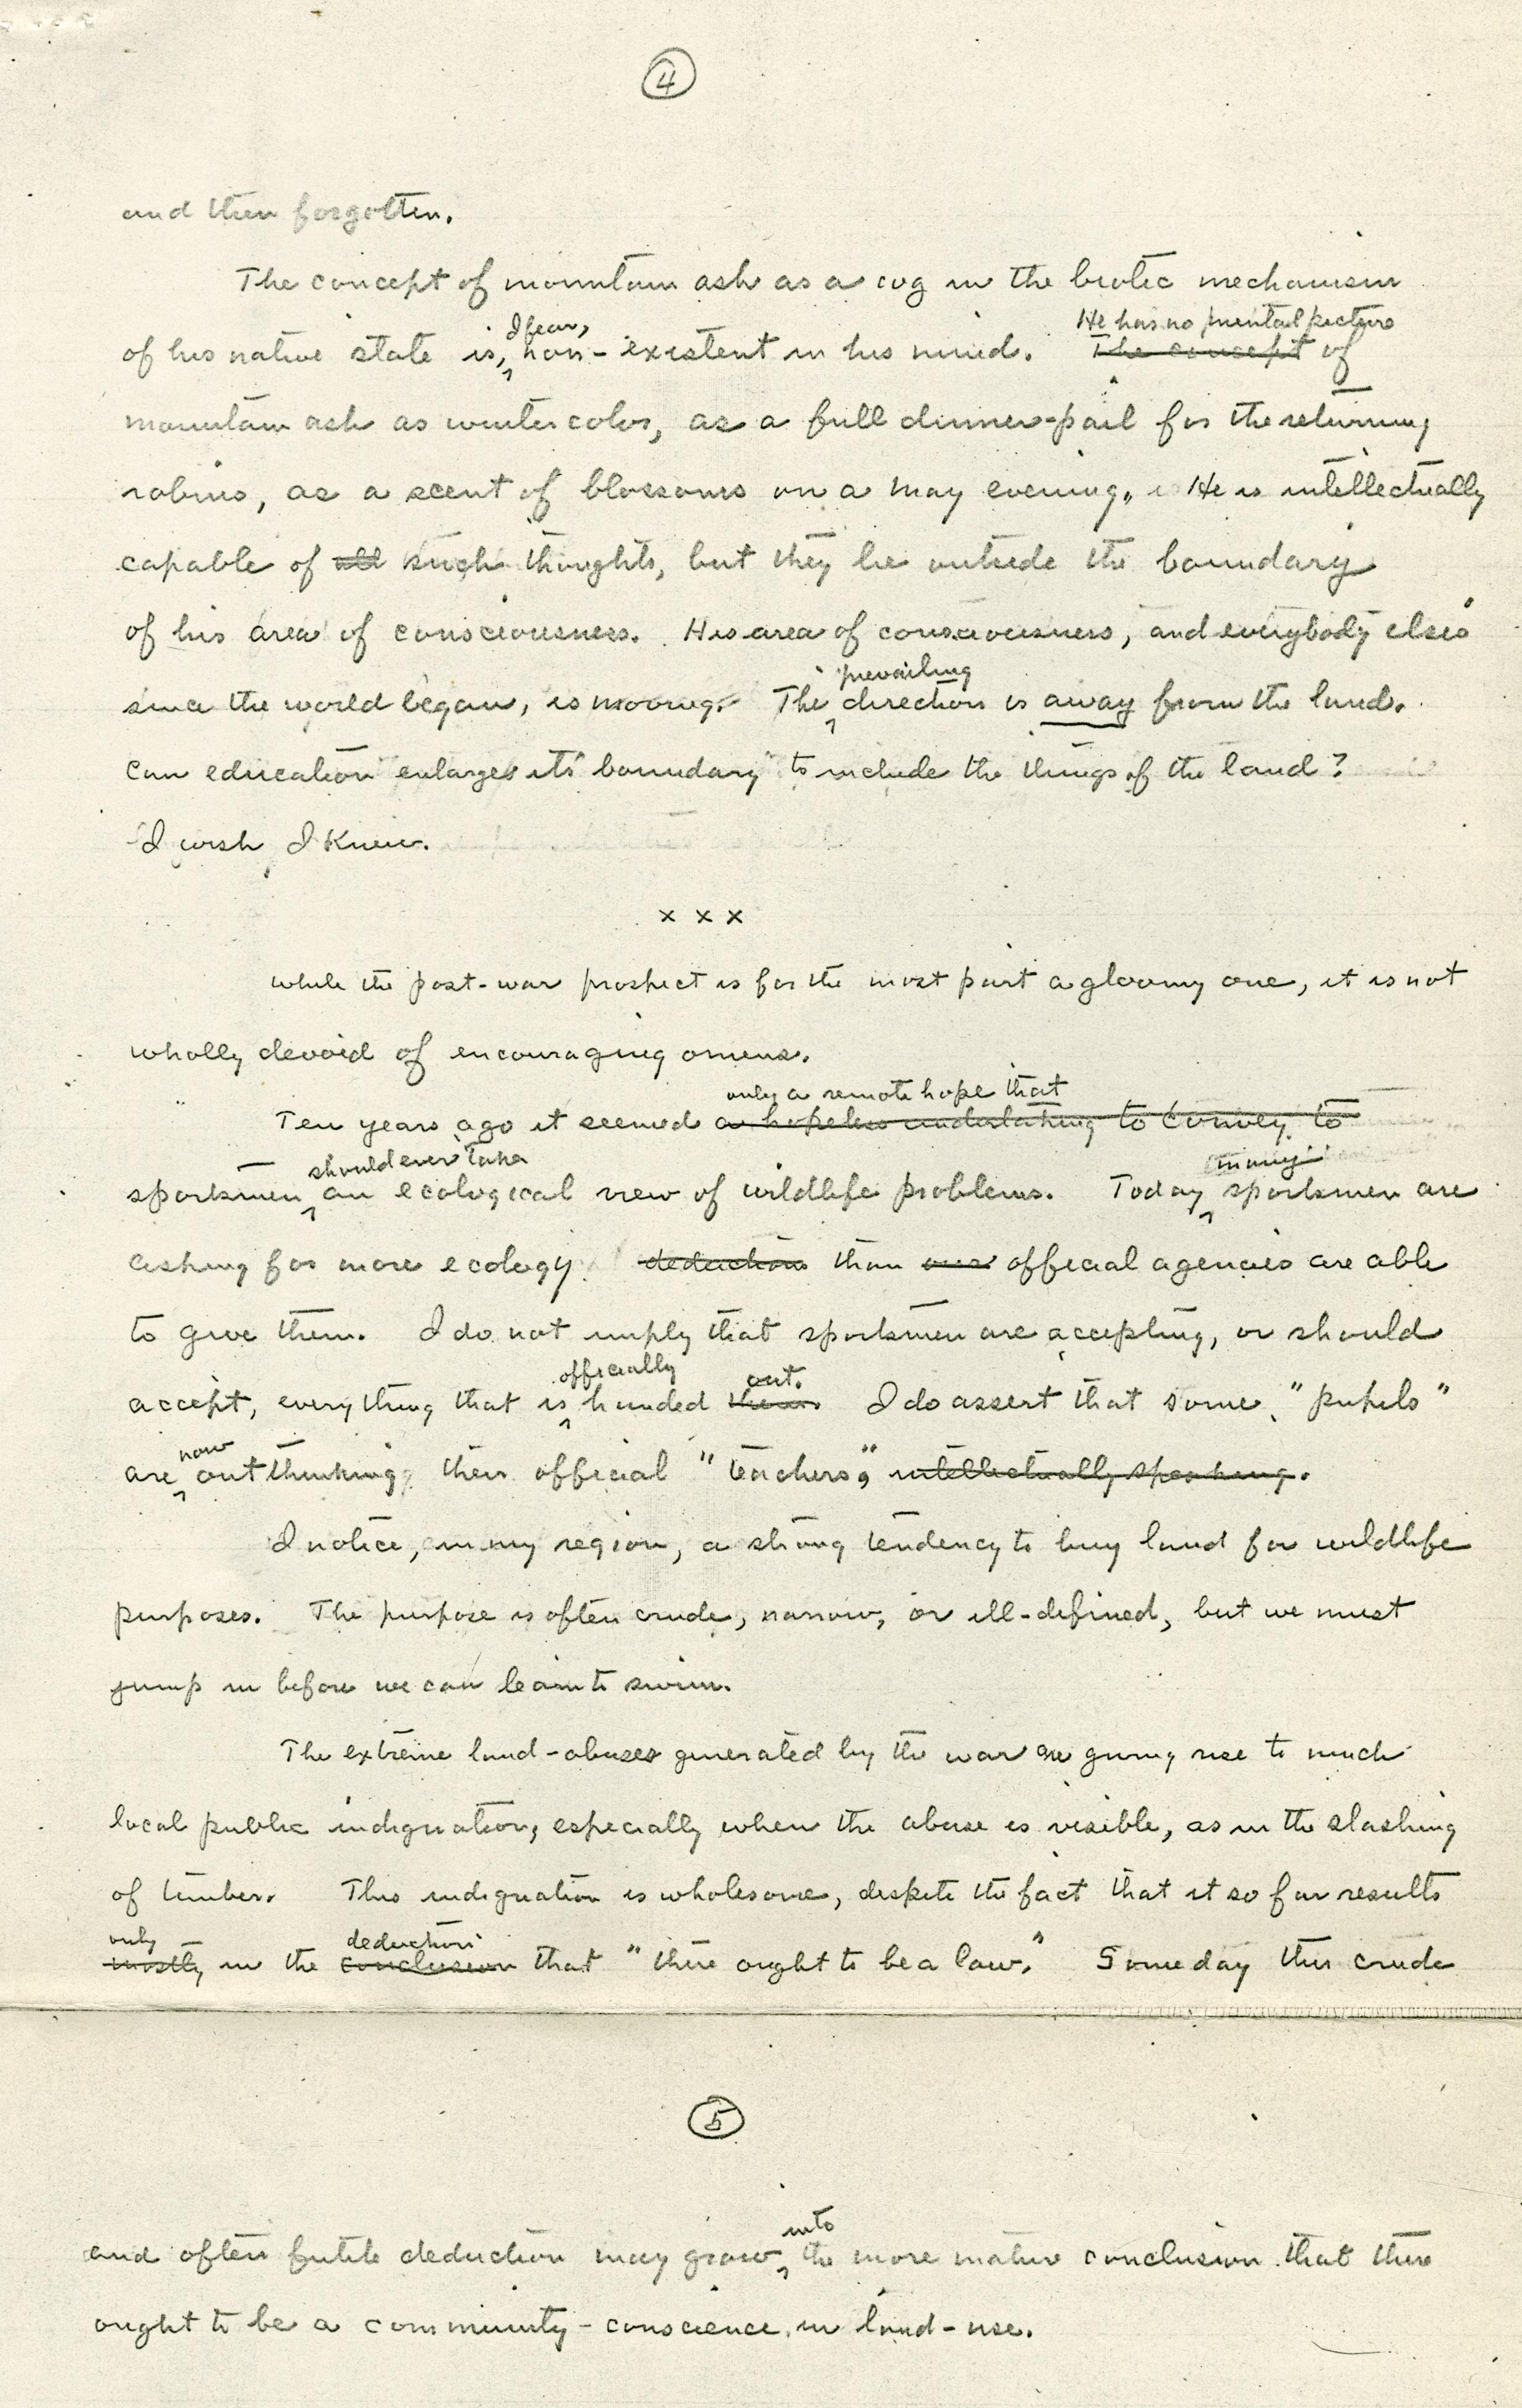 4
and then forgotten.
The concept of mountain ash as a cog in the biotic mechanism
of his native state is, I fear, non-existent in his mind. He has no mental picture ~~The concept~~ of
mountain ash as winter color, as a full dinner-pail for the returning
robins, as a scent of blossoms on a May evening. He is intellectually
capable of ~~all~~ such thoughts, but they lie outside the boundary
of his area of consciousness. His area of consciousness, and everybody else's
since the world began, is moving. The prevailing direction is away from the land.
Can education enlarge its boundary to include the things of the land?
I wish I knew.
x x x
While the post-war prospect is for the most part a gloomy one, it is not
wholly devoid of encouraging omens.
Ten years ago it seemed only a remote hope that ~~a hopeless undertaking to convey to~~
sportsmen should ever take an ecological view of wildlife problems. Today many sportsmen are
asking for more ecology ~~deductions~~ than ~~our~~ official agencies are able
to give them. I do not imply that sportsmen are accepting, or should
accept, everything that is officially handed ~~them.~~ out. I do assert that some "pupils"
are now outthinking their official "teachers," ~~intellectually speaking.~~
I notice, in my region, a strong tendency to buy land for wildlife
purposes. The purpose is often crude, narrow, or ill-defined, but we must
jump in before we can learn to swim.
The extreme land-abuses generated by the war are giving rise to much
local public indignation, especially when the abuse is visible, as in the slashing
of timber. This indignation is wholesome, despite the fact that it so far results
only ~~mostly~~ in the deduction ~~conclusion~~ that "there ought to be a law." Some day this crude
5
and often futile deduction may grow into the more mature conclusion that there
ought to be a community-conscience in land-use.